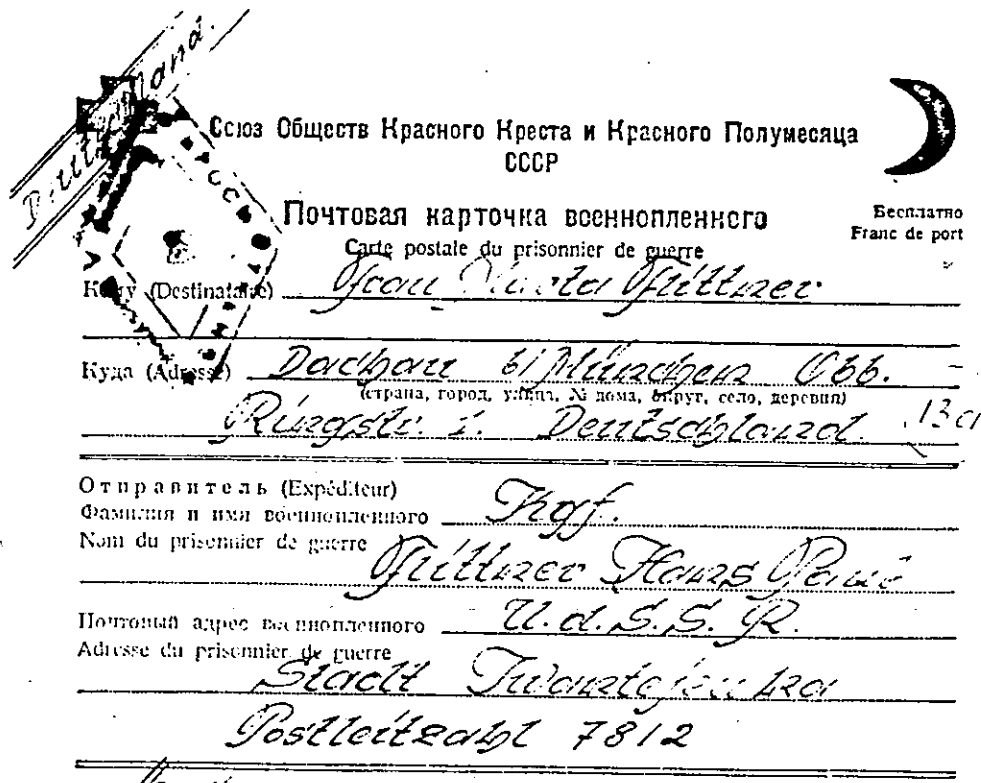 Союз Обществ Красного Креста и Красного Полумесяца
СССР
Почтовая карточка военнопленного
Бесплатно
Carte postale du prisonnier de guerre
Franc de port
Кому (Destinataire) Frau Füttner
Куда (Adresse) Dachau b/ München Obb.
(страна, город, улица, № дома, округ, село, деревня)
Ringstr. 1. Deutschland. 13a
Отправитель (Expéditeur)
Фамилия и имя военнопленного Kgf.
Nom du prisonnier de guerre
Füttner Hans
Почтовый адрес военнопленного U.d.S.S.R.
Adresse du prisonnier de guerre
Stadt
Postleitzahl 7812